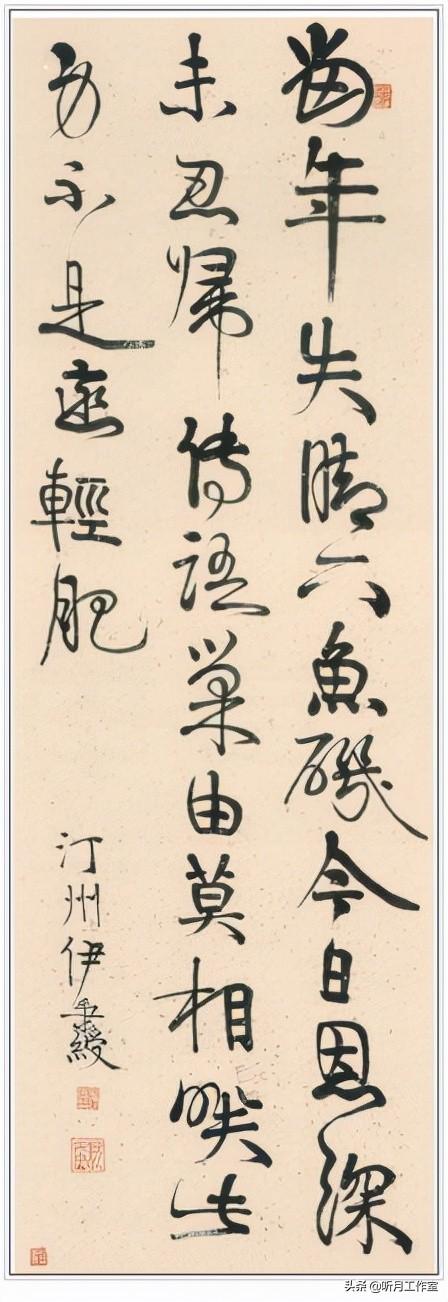 當年失脚下魚磯今日恩深
未忍歸傳語巢由莫相咲此
身不是愛輕肥
汀州伊秉綬
头条 @听月工作室